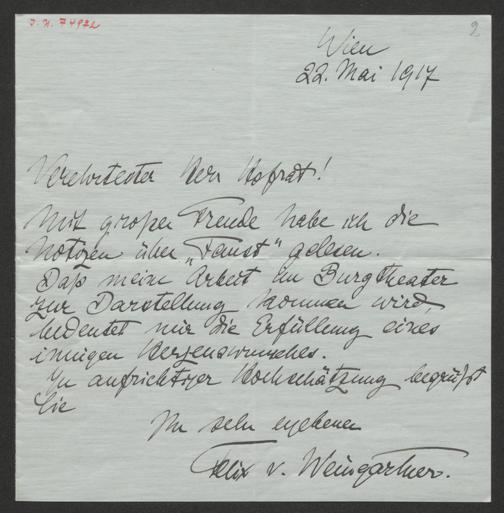 J.N. 74932
2
Wien
22. Mai 1917
Verehrtester Herr Hofrat!
Mit großer Freude habe ich die
Notizen über „Faust“ gelesen.
Daß meine Arbeit im Burgtheater
zur Darstellung kommen wird,
bedeutet mir die Erfüllung eines
innigen Herzenswunsches.
In aufrichtiger Hochschätzung begrüßt
Sie
Ihr sehr ergebener
Felix v. Weingartner.